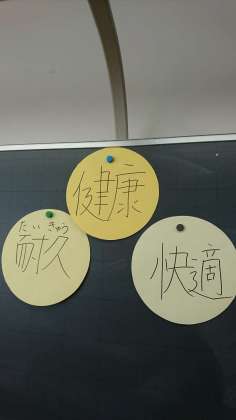 健康
たいきゅう
耐久
快適